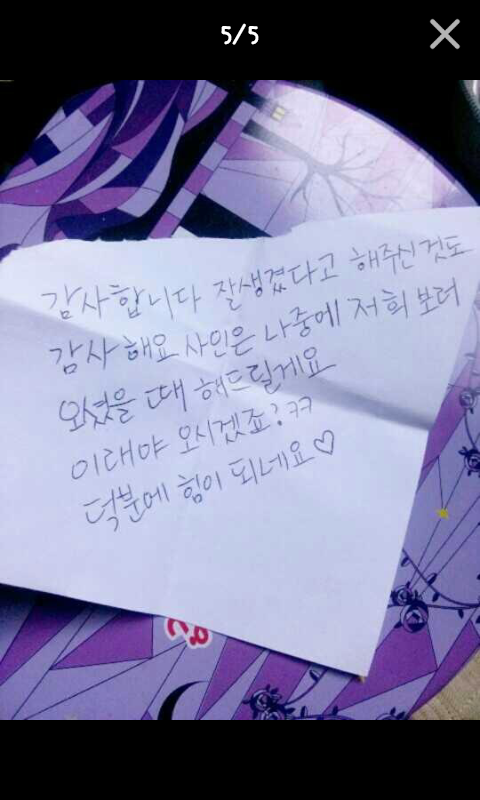 5/5
감사합니다 잘생겼다고 해주신것도
감사해요 사인은 나중에 저희 보러
오셨을 때 해드릴게요
이래야 오시겠죠? ㅋㅋ
덕분에 힘이 되네요♡